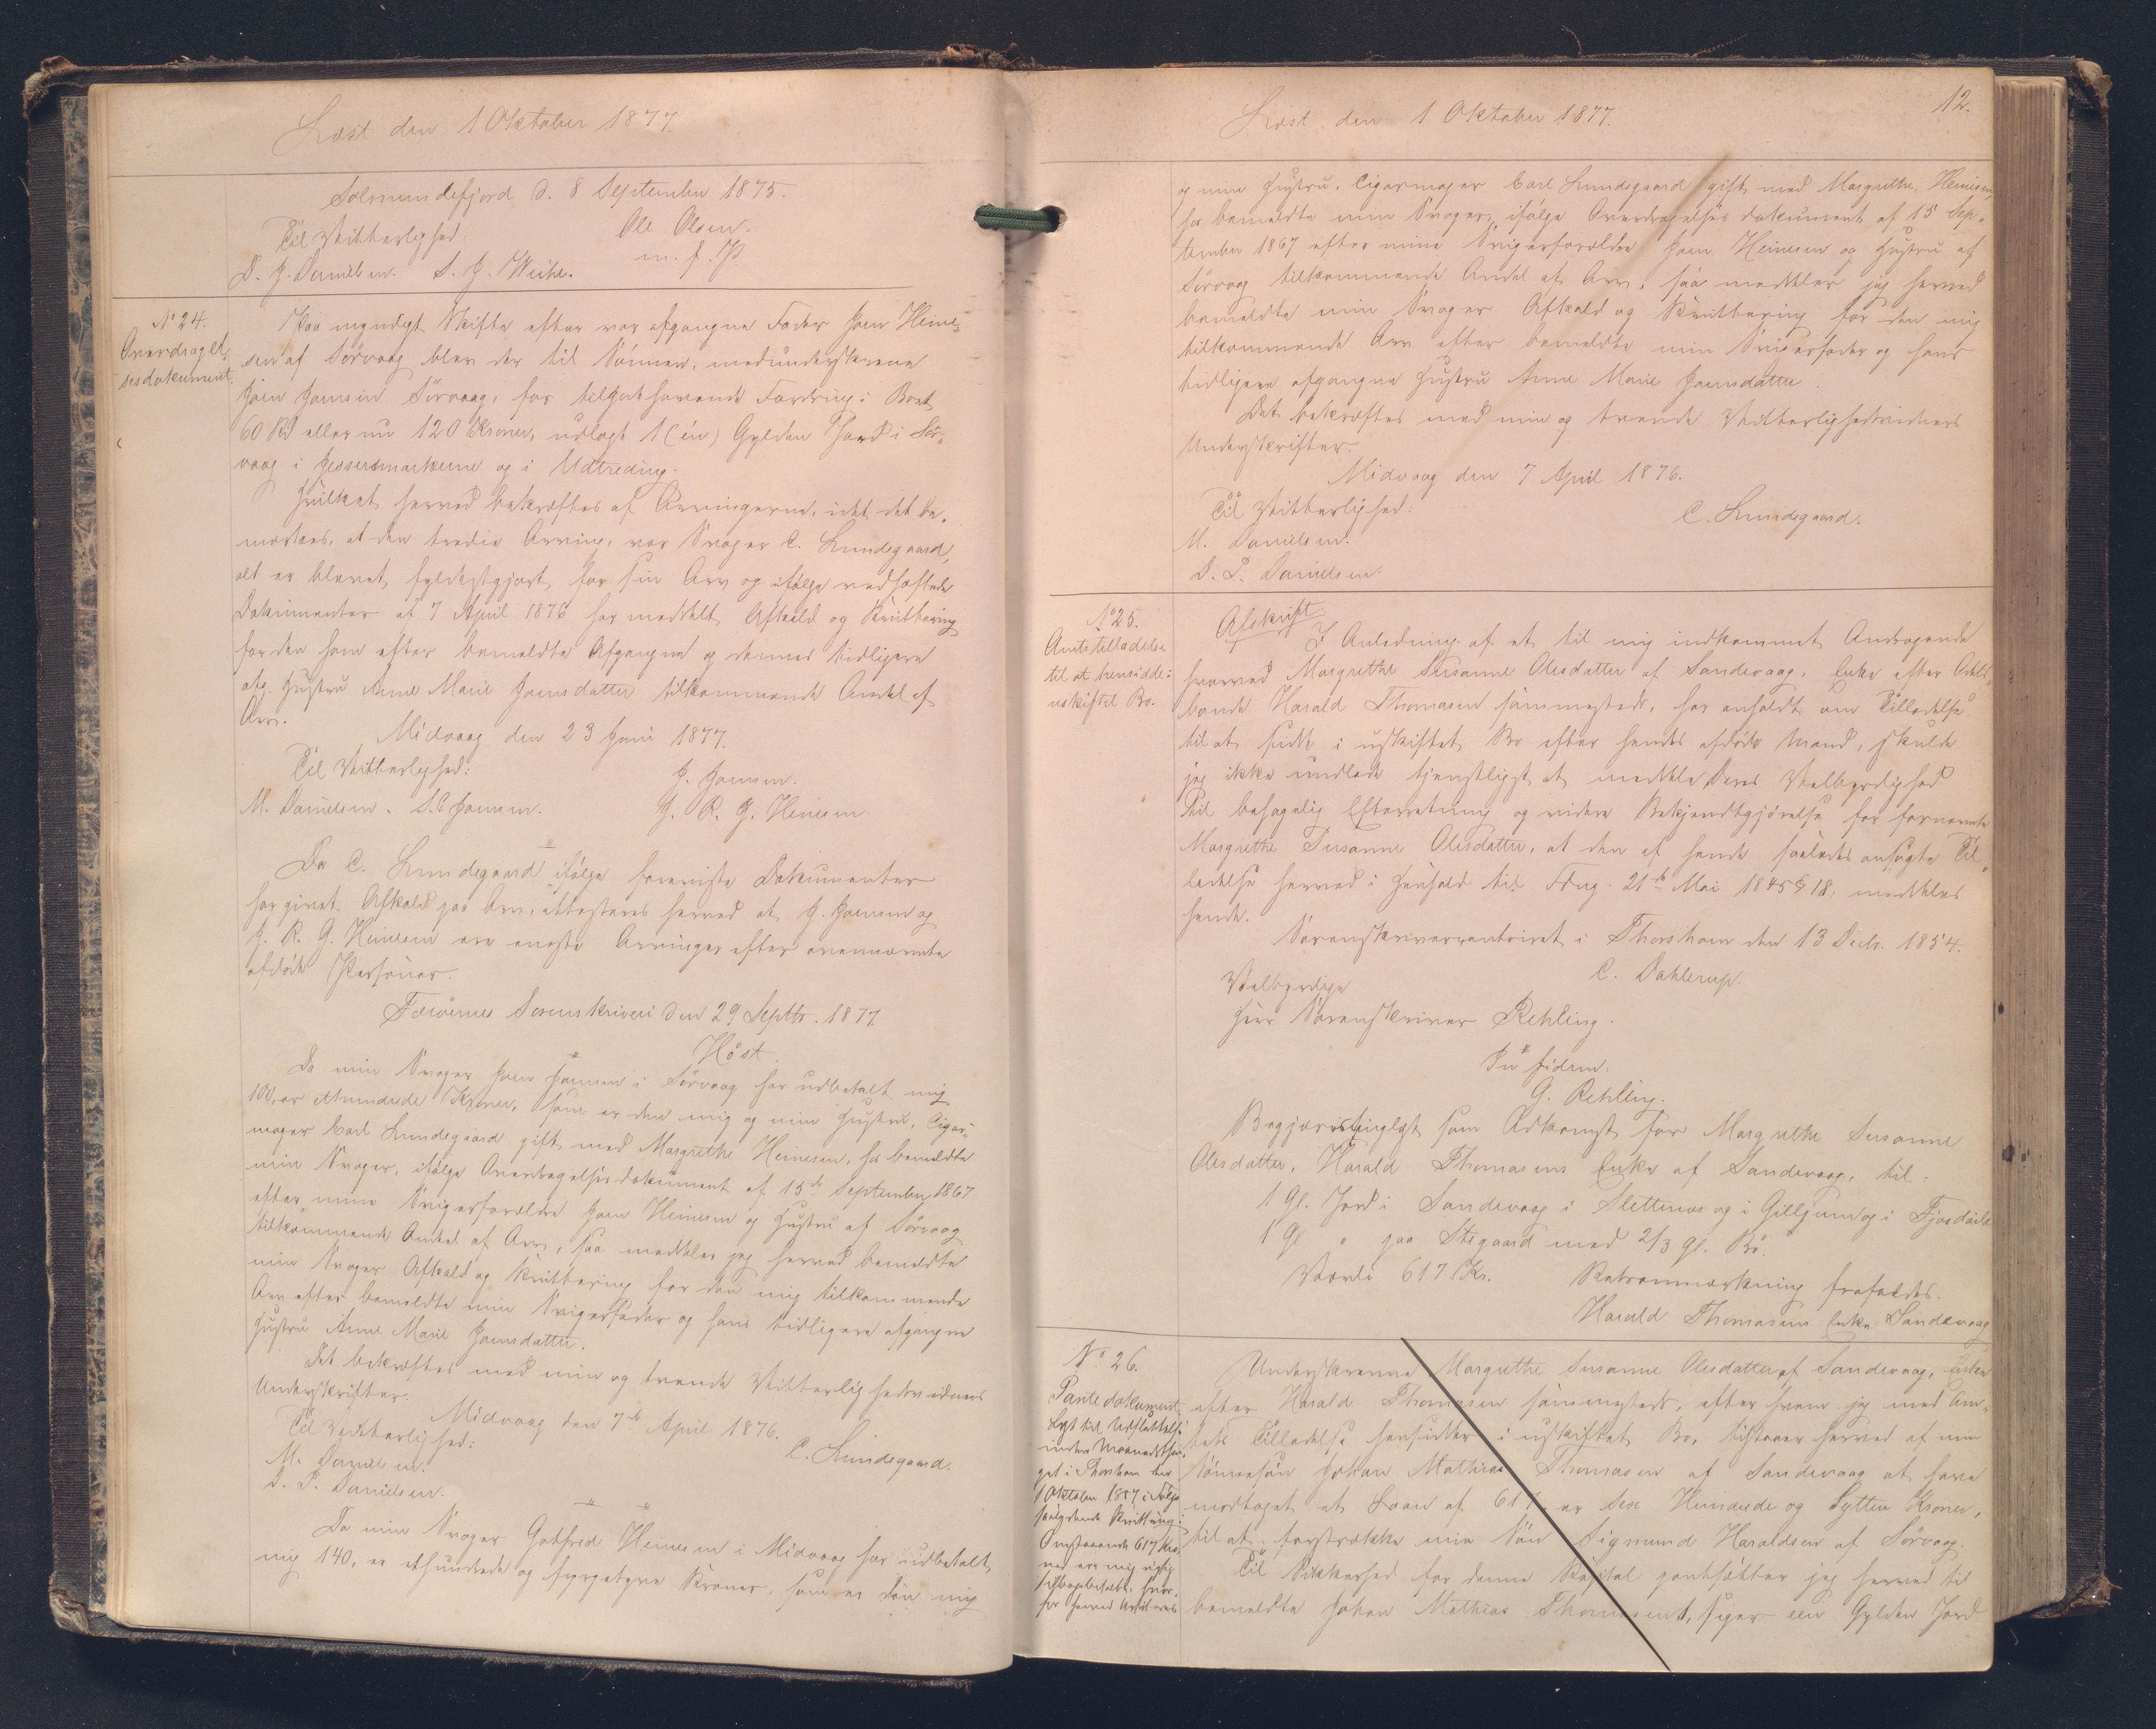 Læst den 1 Oktober 1877.
Solmundefjord d. 8 September 1875.
Til Vitterlighed: Ole Olsen.
D. J. Danielsen. S. J. Weihe. m. f. P.
No 24.
Overdragel-
sesdokument.
Paa myndigt Skifte efter vor afgangne Fader Joen Heine-
sen af Sörvaag blev der til Sönnen, medunderskrevne
Joen Joensen Sörvaag, for tilgodehavende Fordring i Boet
60 Rd eller nu 120 Kroner, udlagt 1 (én) Gylden Jord i Sör-
vaag i Jessersmarkerne og i Udtreding.
Hvilket herved bekræftes af Arvingerne, idet det be-
mærkes, at den tredie Arving, vor Svoger C. Lundegaard,
alt er blevet fyldestgjort for sin Arv og ifølge vedhæftede
Dokumenter af 7 April 1876 har meddelt Afkald og Kvittering
for den ham efter bemeldte Afgangne og dennes tidligere
afg. Hustru Anne Marie Joensdatter tilkommende Andel af
Arv.
Midvaag den 23 Juni 1877.
Til Vitterlighed: J. Joensen.
M. Danielsen. S. C. Joensen. J. R. G. Heinesen.
Da C. Lundegaard ifølge foreviste Dokumenter
har givet Afkald paa Arv, attesteres herved at J. Joensen og
J. R. G. Heinesen ere eneste Arvinger efter ovennævnte
afdøde Personer.
Færöernes Sorenskriveri den 29 Septbr. 1877.
Höst.
Da min Svoger Joen Joensen i Sörvaag har udbetalt mig
100, er etHundrede Kroner, som er den mig og min Hustru, Cigar-
mager Carl Lundegaard gift med Margrethe Heinesen, hos bemeldte
min Svoger, ifølge Overdragelsesdokument af 15de September 1867
efter mine Svigerforældre Joen Heinesen og Hustru af Sörvaag
tilkommende Andel af Arv, saa meddeler jeg herved bemeldte
min Svoger Afkald og Kvittering for den mig tilkommende
Arv efter bemeldte min Svigerfader og hans tidligere afgangne
Hustru Anne Marie Joensdatter.
Det bekræftes med min og tvende Vitterlighedsvidners
Underskrifter.
Midvaag den 7de April 1876.
Til Vitterlighed: C. Lundegaard.
M. Danielsen.
D. P. Danielsen.
Da min Svoger Gotfred Heinesen i Midvaag har udbetalt
mig 140, er ethundrede og fyrgetyve Kroner, som er den mig
12.
Læst den 1 Oktober 1877.
og min Hustru, Cigarmager Carl Lundegaard gift med Margrethe Heinesen,
hos bemeldte min Svoger, ifølge Overdragelses dokument af 15 Sep-
tember 1867 efter mine Svigerforældre Joen Heinesen og Hustru af
Sörvaag tilkommende Andel af Arv, saa meddeler jeg herved
bemeldte min Svoger Afkald og Kvittering for den mig
tilkommende Arv efter bemeldte min Svigerfader og hans
tidligere afgangne Hustru Anne Marie Joensdatter.
Det bekræftes med min og tvende Vitterlighedsvidners
Underskrifter.
Midvaag den 7 April 1876.
Til Vitterlighed: C. Lundegaard.
M. Danielsen.
D. P. Danielsen.
No 25.
Amtstilladelse
til at hensidde i
uskiftet Bo.
Afskrift
I Anledning af et til mig indkommet Andragende
hvorved Margrethe Susanne Olesdatter af Sandevaag, Enke efter Odels-
bonde Harald Thomasen sammesteds, har anholdt om Tilladelse
til at sidde i uskiftet Bo efter hendes afdøde Mand, skulde
jeg ikke undlade tjenstligst at meddele Deres Velbyrdighed
til behagelig Efterretning og videre Bekjendtgjörelse for fornævnte
Margrethe Susanne Olesdatter, at den af hende saaledes ansøgte Til-
ladelse herved i Henhold til Frdng. 21de Mai 1845 § 18, meddeles
hende.
Sorenskrivercontoiret i Thorshavn den 13 Decbr. 1854.
C. Dahlerup.
Velbyrdige
Herr Sorenskriver Rehling.
In fidem.
G. Rehling.
Begjæres tinglyst som Adkomst for Margrethe Susanne
Olesdatter, Harald Thomasens Enke af Sandevaag, til:
1 Gl. Jord i Sandevaag i Slettenæs og i Gilljum og i Fjosdale
1 Gl " paa Stegaard med 2/3 Gl. Bö.
Værdi 617 Kr. Retsanmærkning frafaldes.
Harald Thomasens Enke Sandevaag
No. 26.
Pantedokument.
Lyst til Udslettelse
inden Maanedsthin-
get i Thorshavn den
1 Oktober 1877 i Følge
saalydende Kvittering:
Omstaaende 617 Kro-
ner ere mig rigtig
tilbagebetalte, hvor-
for herved kvitteres
Underskrevne Margrethe Susanne Olesdatter af Sandevaag, Enke
efter Harald Thomasen sammesteds, efter hvem jeg med Am-
tets Tilladelse hensidder i uskiftet Bo, tilstaaer herved af min
Sönnesön Johan Mathias Thomasen af Sandevaag at have
modtaget et Laan af 617 er Sex Hundrede og Sytten Kroner,
til at forstrække min Sön Sigmund Haraldsen af Sörvaag.
Til Sikkerhed for denne Kapital pantsætter jeg herved til
bemeldte Johan Mathias Thomasen 1, siger een Gylden Jord